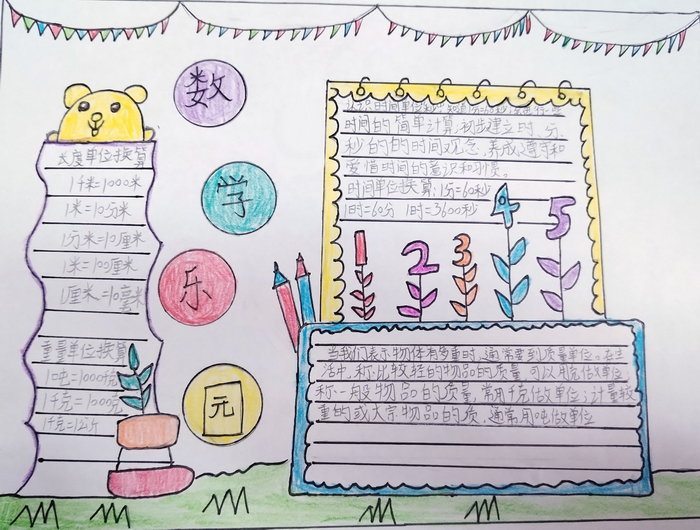 数
学
乐
元
长度单位换算
1千米=1000米
1米=10分米
1分米=10厘米
1米=100厘米
1厘米=10毫米
重量单位换算
1吨=1000千克
1千克=1000克
1千克=1公斤
认识时间单位秒,知道1分=60秒,会进行一些
时间的简单计算,初步建立时、分、
秒的的时间观念,养成遵守和
爱惜时间的意识和习惯。
时间单位换算:1分=60秒
1时=60分 1时=3600秒
1 2 3 4 5
当我们表示物体有多重时,通常要到质量单位。在生
活中,称比较轻的物品的质量,可以用克做单位
称一般物品的质量,常用千克做单位;计量较
重的或大宗物品的质,通常用吨做单位